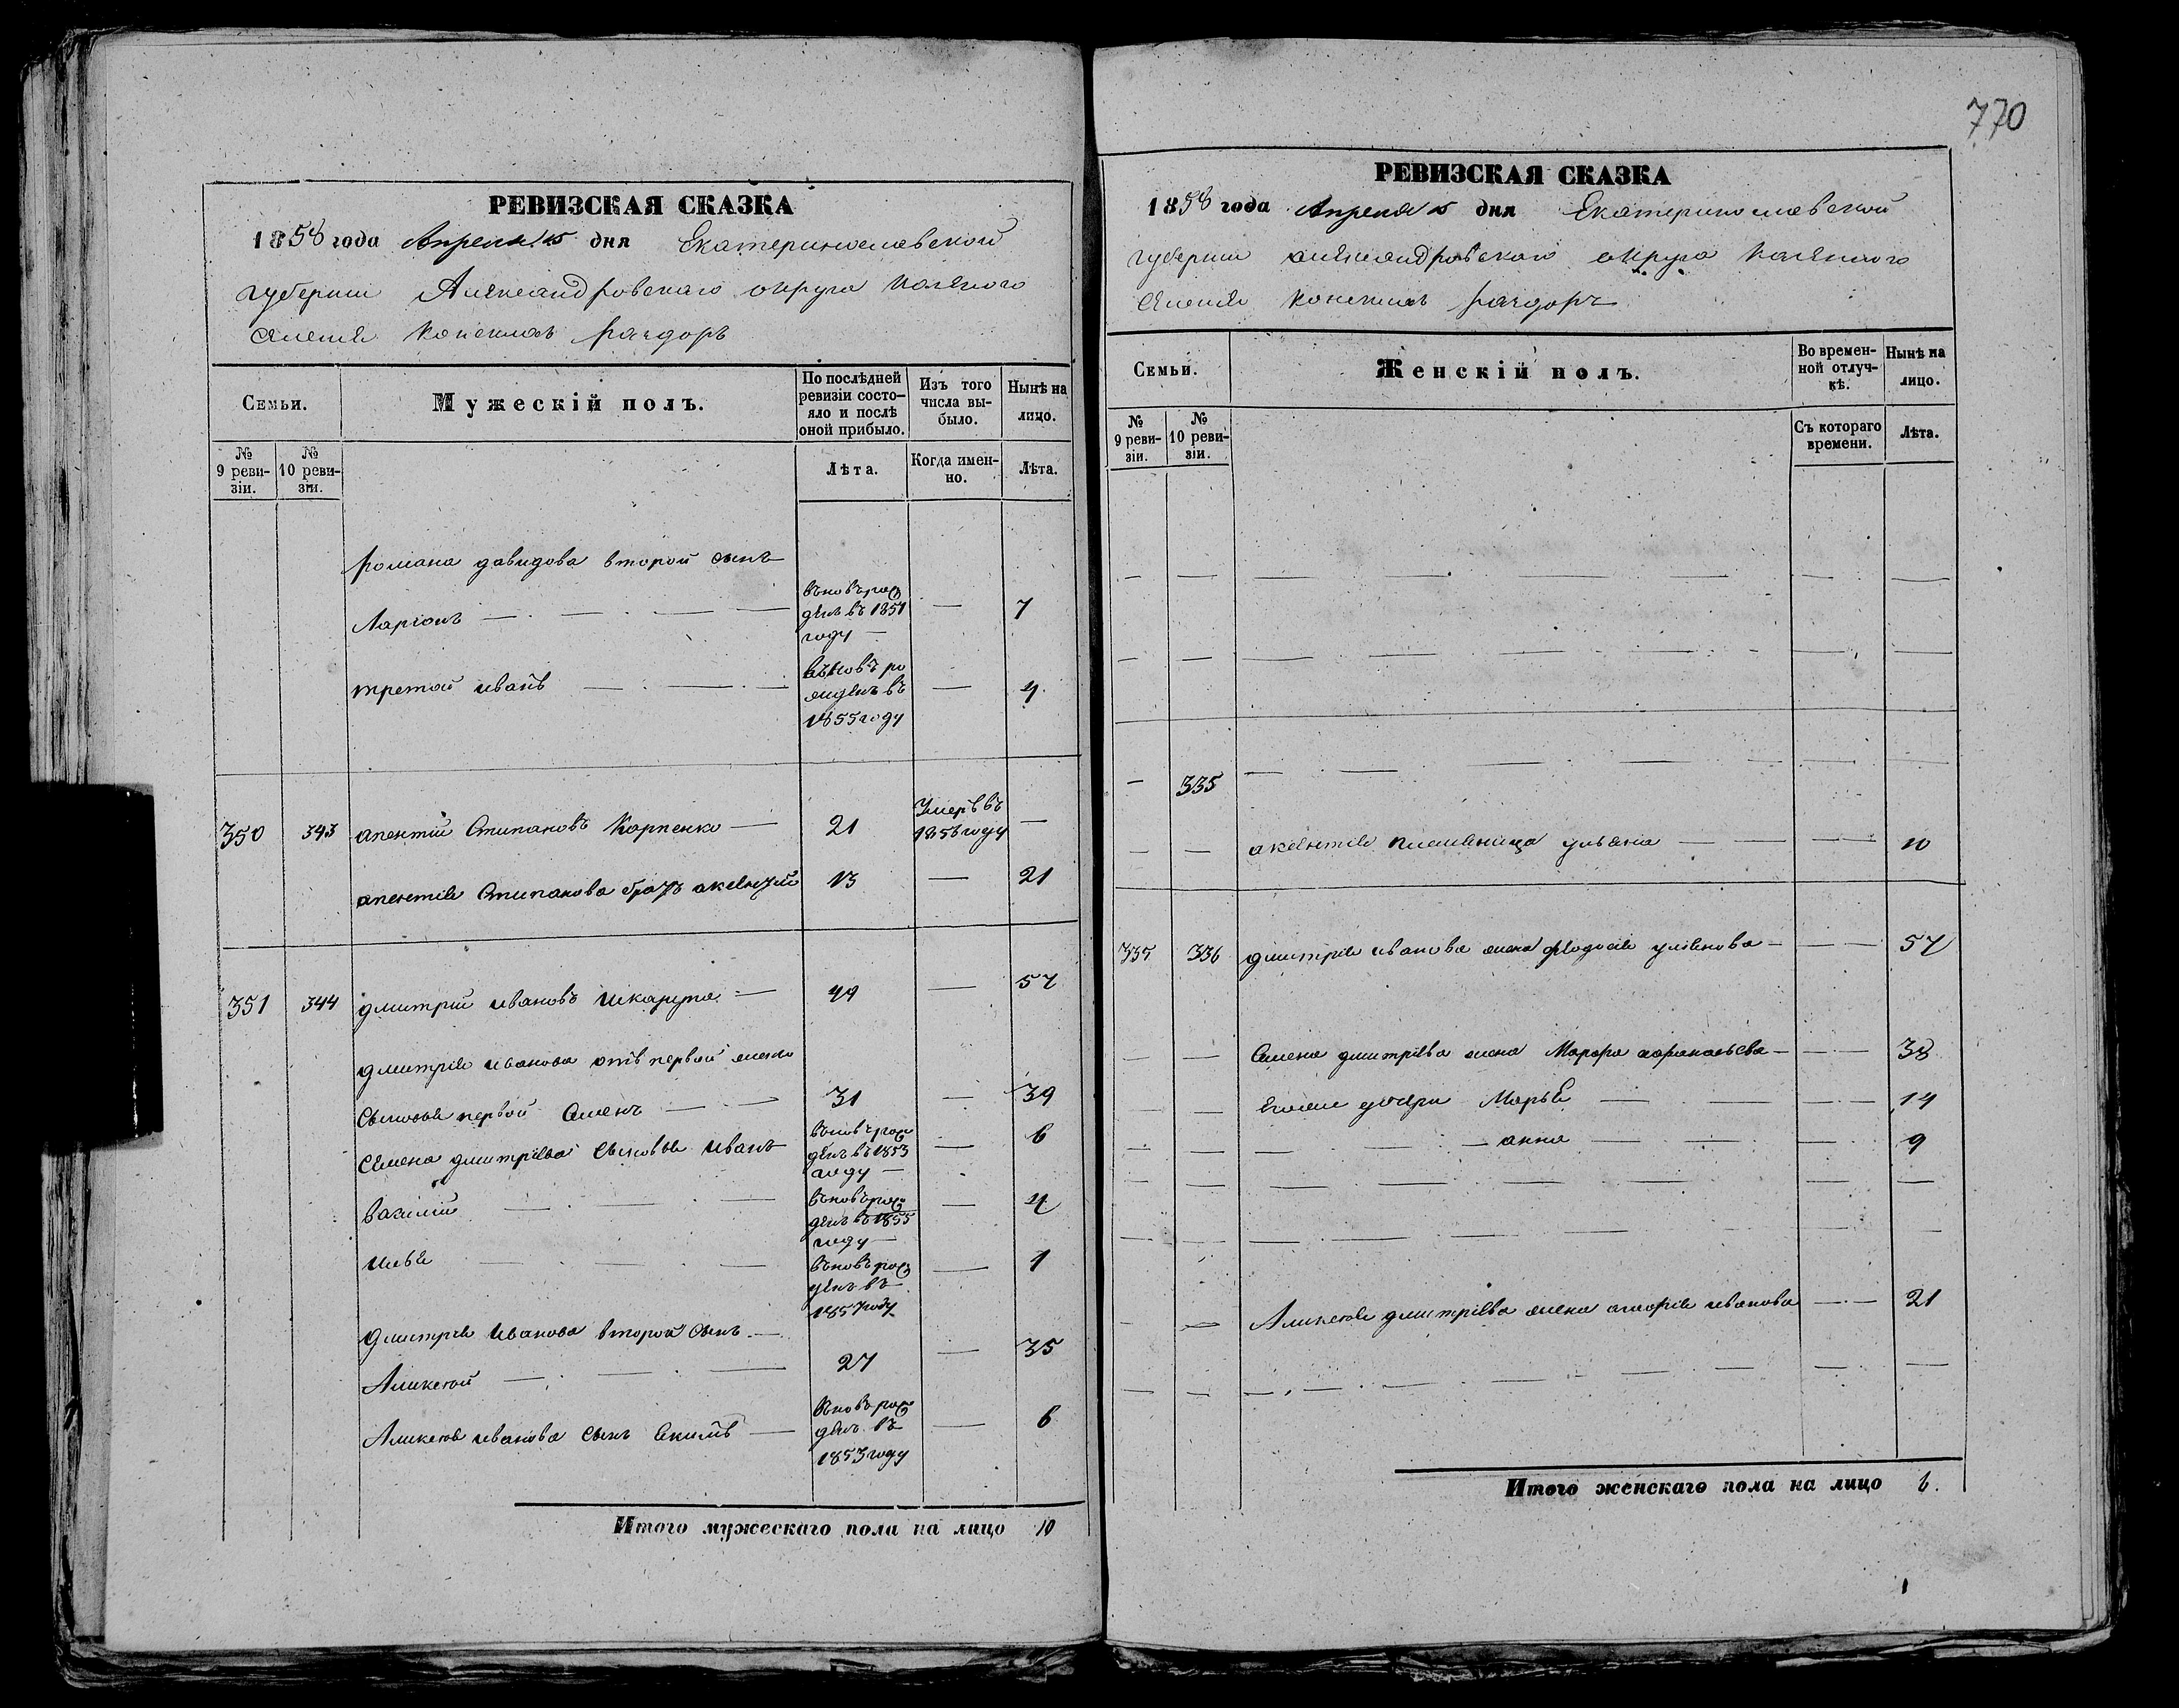 770
РЕВИЗСКАЯ СКАЗКА
1858 года Апреля 15 дня Екатеринославской
губернии Александровскаго округа казеннаго
селенія Конскихъ раздоръ
Семьи.
Мужескій полъ.
По послѣдней ревизіи состояло и послѣ оной прибыло.
Изъ того числа выбыло.
Нынѣ на лицо.
№ 9 ревизіи.
№ 10 ревизіи.
Лѣта.
Когда именно.
Лѣта.
романа давидова второй сынъ
Ларіонъ — въновь рожденъ въ 1851 году — 7
третой иванъ — въновь рожденъ въ 1855 году — 4
350 343 апентій Стипановъ Карпенко — 21 Умеръ въ 1856 году —
апентія Стипанова братъ аксентій 13 — 21
351 344 дмитрій ивановъ шкарупа — 49 — 57
дмитрія иванова отъ первой жены
сыновья первой Семенъ — 31 — 39
Семена дмитріева сыновья иванъ въновь рожденъ въ 1853 году — 6
василій — въновь рожденъ въ 1855 году — 4
илья — въновь рожденъ въ 1857 году — 1
дмитрія иванова второй сынъ —
Аликсѣй — 27 — 35
Аликсѣя иванова сынъ Екимъ — въновь рожденъ въ 1853 году — 6
Итого мужескаго пола на лицо 10
РЕВИЗСКАЯ СКАЗКА
1858 года Апреля 15 дня Екатеринославской
губернии александровскаго округа казеннаго
селенія Конскихъ раздоръ
Семьи.
Женскій полъ.
Во временной отлучкѣ.
Нынѣ на лицо.
№ 9 ревизіи.
№ 10 ревизіи.
Съ котораго времени.
Лѣта.
— 335 —
— — аксентія племяница ульяна — — 10
335 336 дмитрія иванова жена феодосія — — 57
— — Семена дмитріева жена Марфа афанасьева — — 38
— — дочери Марья — — 14
— — — анна — — 9
— — Аликсѣя дмитріева жена агафія иванова — — 21
Итого женскаго пола на лицо 6.